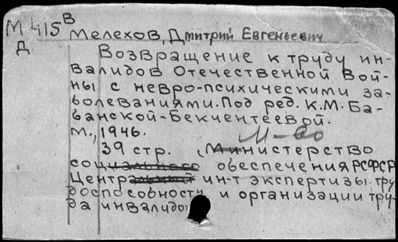 М415 В
Мелехов, Дмитрий Евгеньевич
Д
Возвращение к труду ин-
валидов Отечественной Вой-
ны с невро-психическими за-
болеваниями. Под ред. К.М. Ба-
ванской-Бекчентеевой.
М., 1946.
М-во
39 стр. (Министерство
социального обеспечения РСФСР
Центральный ин-т экспертизы тру
доспособности и организации тру-
да инвалидо